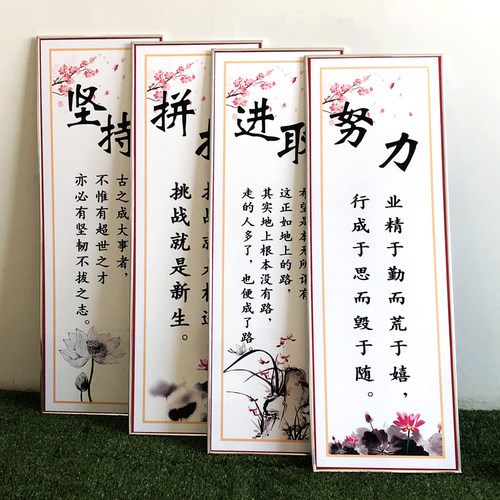 坚持
古之成大事者，
不惟有超世之才
亦必有坚韧不拔之志。
拼
挑战就是新生。
进取
希望是本无所谓有
这正如地上的路，
其实地上根本没有路，
走的人多了，也便成了路。
努力
业精于勤而荒于嬉，
行成于思而毁于随。